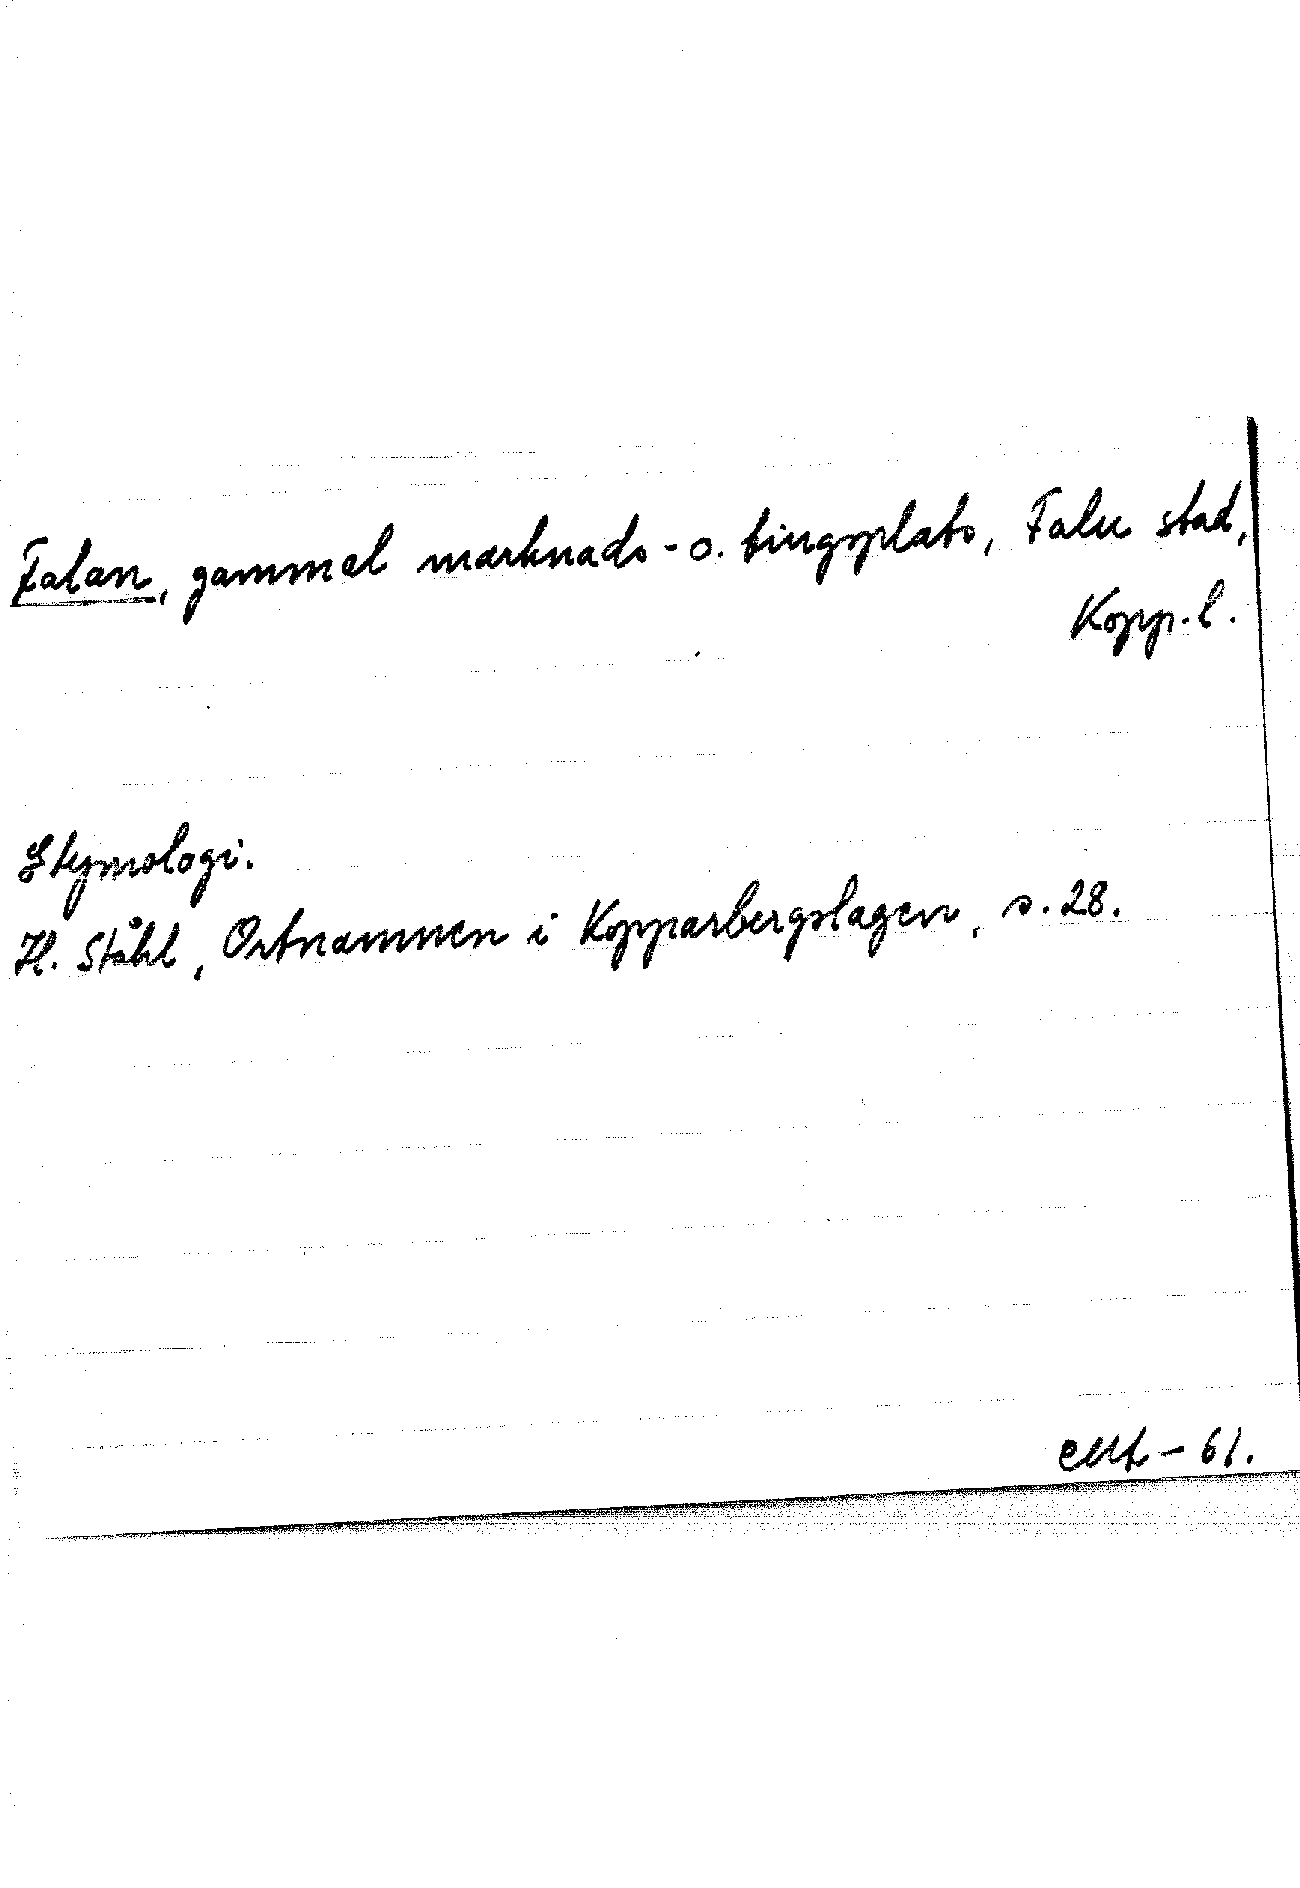 Falan, gammal marknads- o. tingsplats, Falu stad,
Kopp.l.
Etymologi.
H. Ståhl, Ortnamnen i Kopparbergslagen, s. 28.
- 61.